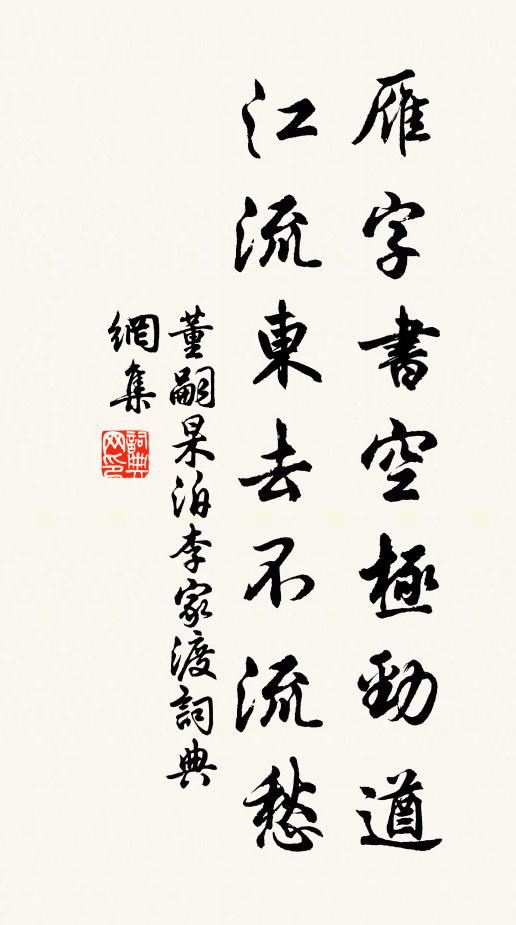 雁字書空極勁遒
江流東去不流愁
董嗣杲泊李家渡詞典
網集
詞典
网印